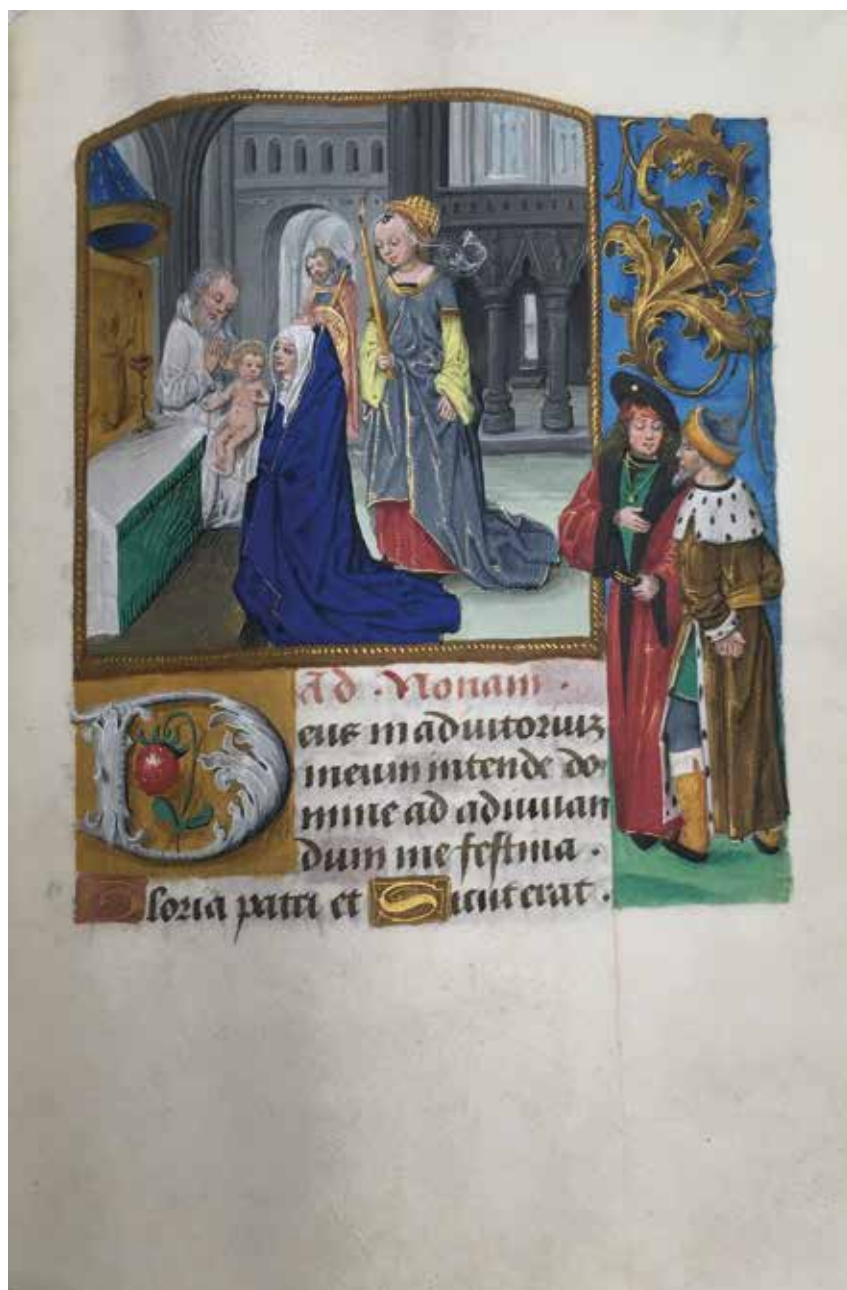 Ad · Nonam ·
Deus in adiutoriuz
meum intende do
mine ad adiuuan
dum me festina ·
Gloria patri et Sicut erat ·